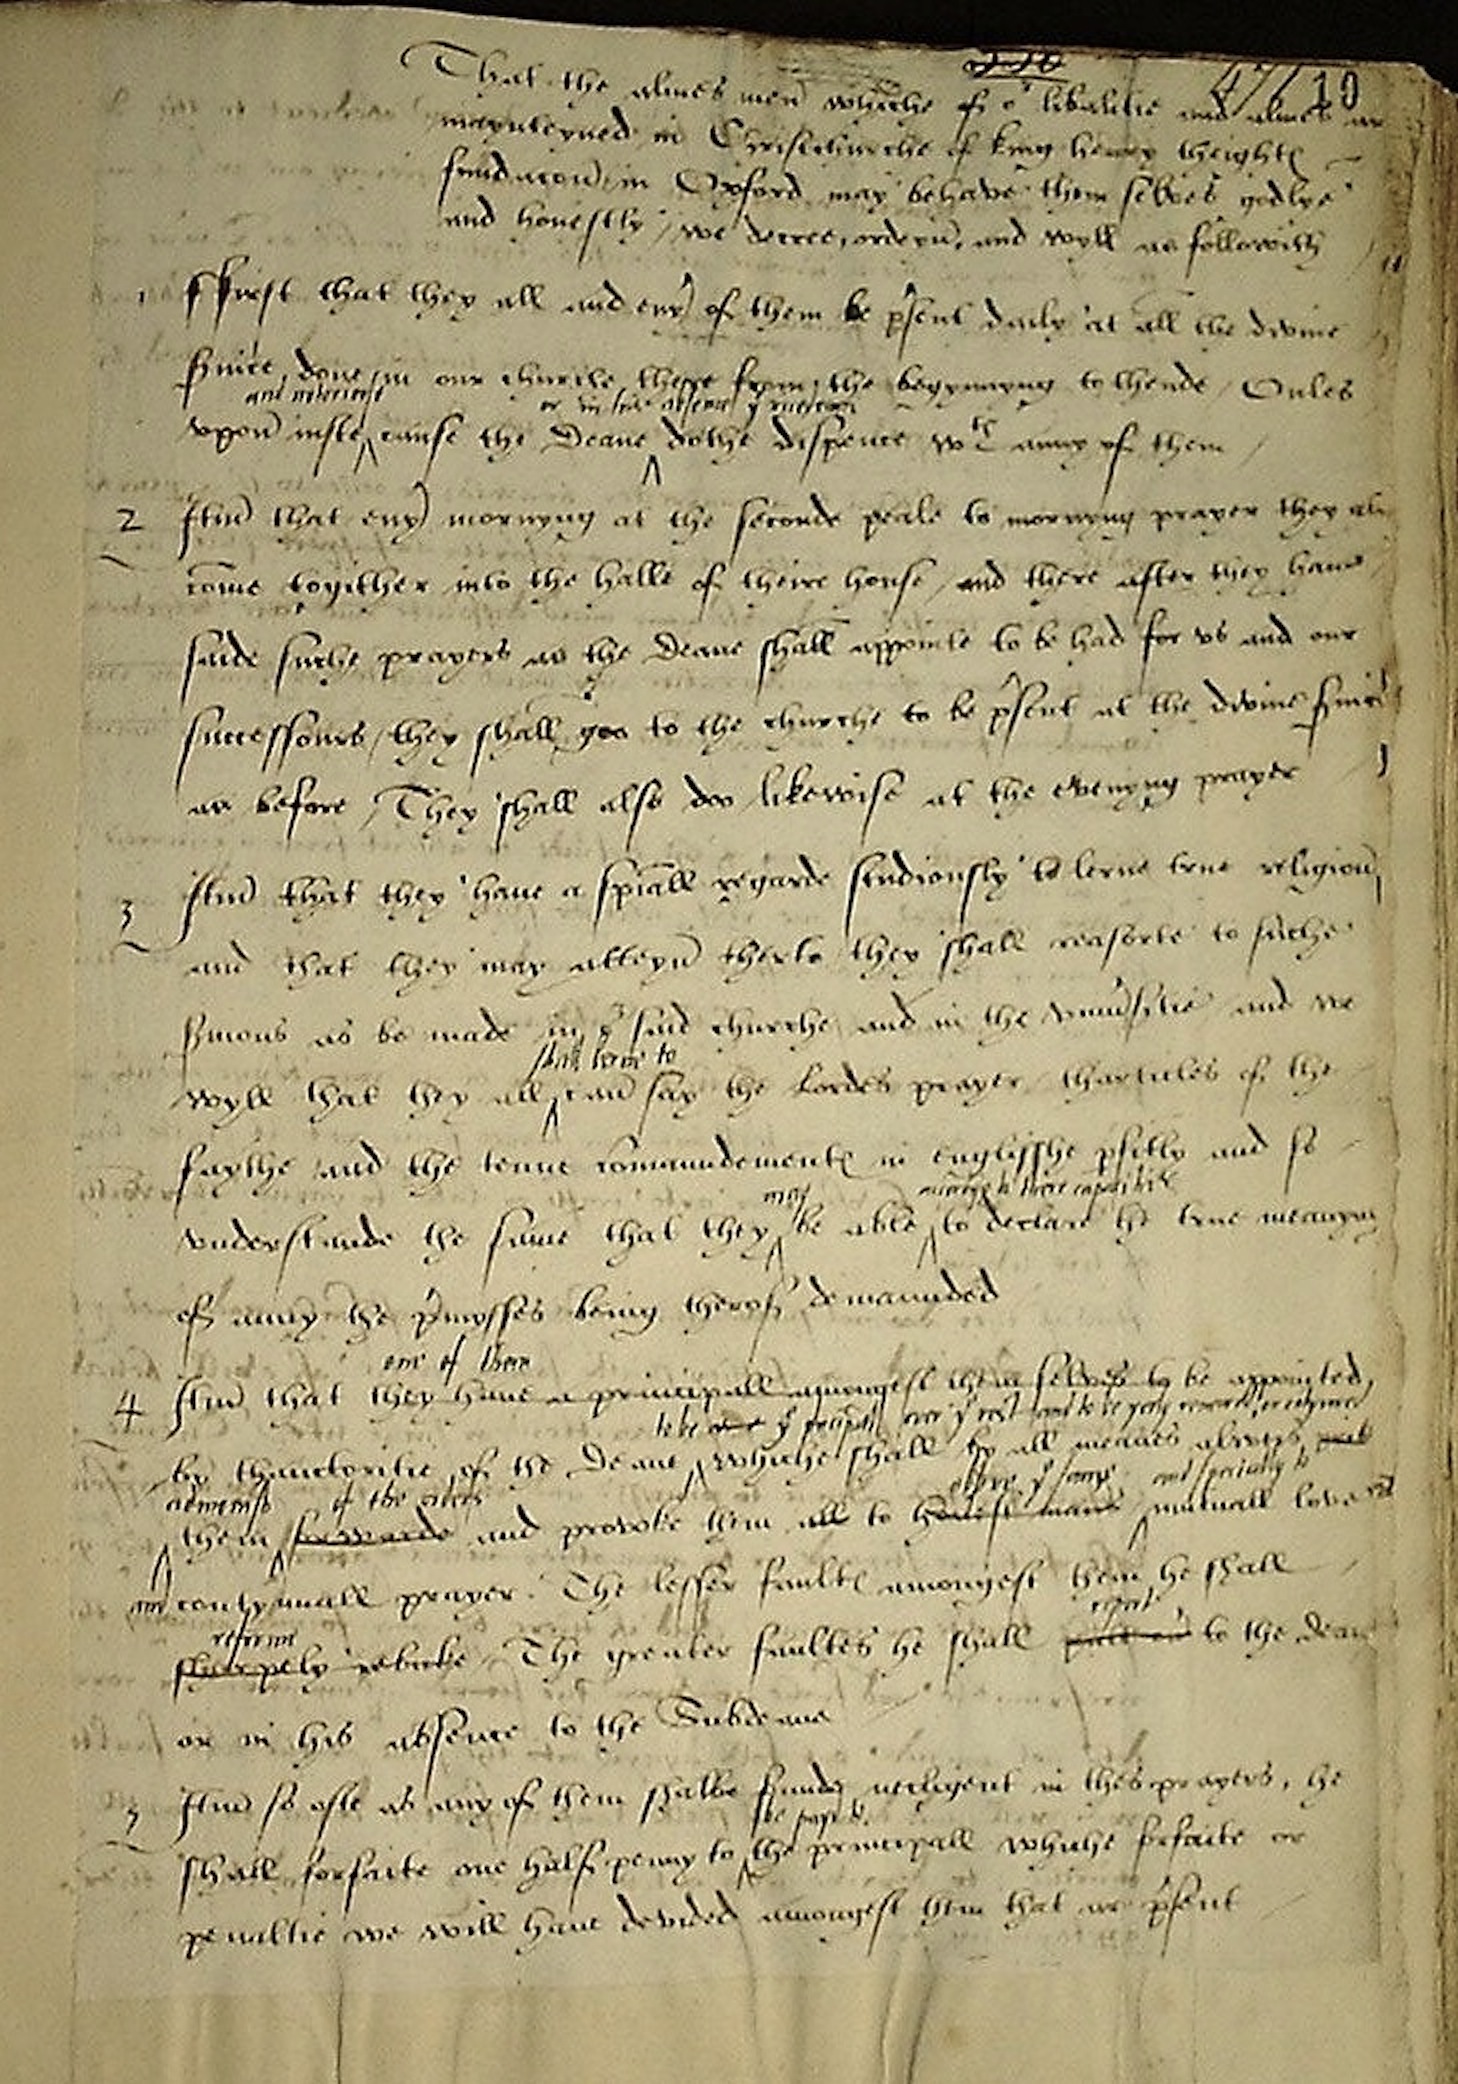 47/ 10
That the almes men whiche of or libalitie and almes ar
maynteyned in Christchurche of king henry theight
fundacon in Oxford may behave them selves godlye
and honestly / we decree, ordeyn, and wyll as followith
1 Ffirst that they all and eny of them be psent daily at all the divine
svice done in our churche there from the begynnyng to thende / Onles
and necessarie or in his absence ye
vpon iuste cause the Deane dothe dispence wth anny of them /
2 Itm that eny mornyng at the seconde peale to mornyng prayer they all
come togither into the halle of theire house / and there after they haue
saide suche prayers as the Deane shall appointe to be had for vs and our
successours / they shall goo to the churche to be psent at the divine svice
as before / They shall also doo likewise at the evenyng prayer
3 Itm that they haue a spiall regarde studiously to lerne true religion
and that they may atteyn therto they shall reasorte to suche
smons as be made in ye said churche and in the vniusitie and we
shall lerne to
wyll that they all can say the Lordes prayer / tharticles of the
faythe and the tenne comaundement in englisshe pfitly and so
may according to there capacitie
vnderstande the same that they be able to declare the true meanyng
of anny the pmysses being therof demaunded
one of them
4 Itm that they haue a principall amongest them selves to be appointed
to be one ye principall over ye rest and to be
by thauctoritie of the Deane whiche shall by all meanes alweys
admonish of the orders observe ye same and specially to
them forwarde and provoke them all to honest maners mutuall love and
and contynuall prayer. The lesser fault amongest them he shall
reforme report
sharpely rebuke / The greater faultes he shall to the deane
or in his absence to the Subdeane
5 Itm so ofte as any of them shalbe founde necligent in thes prayers, he
be payd to
shall forfaite one half penny to the principall whiche forfaite or
penaltie we will haue devided amongest them that are psent